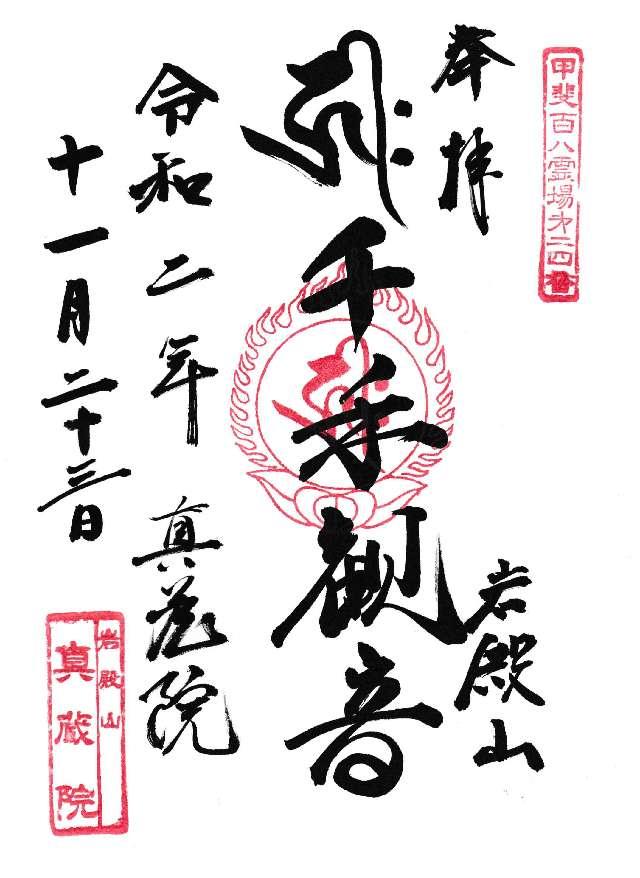 甲斐百八霊場第二四番
奉拝
岩殿山
ह्रीः
千手観音
令和二年
真蔵院
十一月二十三日
岩殿山
真蔵院